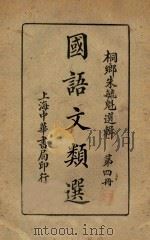 桐鄉朱毓魁選輯 第四冊
國語文類選
上海中華書局印行